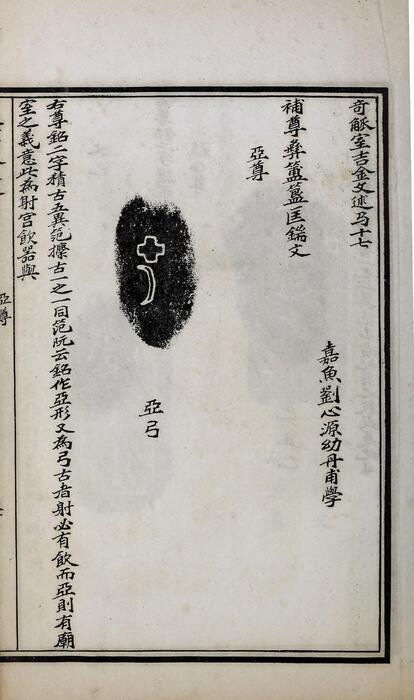 奇觚室吉金文述卷十七
嘉魚劉心源幼丹甫學
補尊彝簠簋匡鍴文
亞尊
亞弓
右尊銘二字積古五異笵攈古一之一同笵阮云銘作亞形又為弓古者射必有飲而亞則有廟
室之義意此為射宮飲器與
亞尊